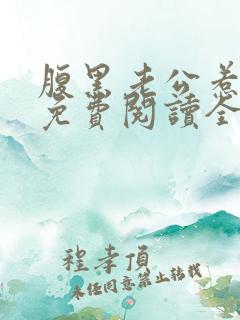 腹黑老公惹
免費閱讀全
程孝頂
未經同意禁止轉載